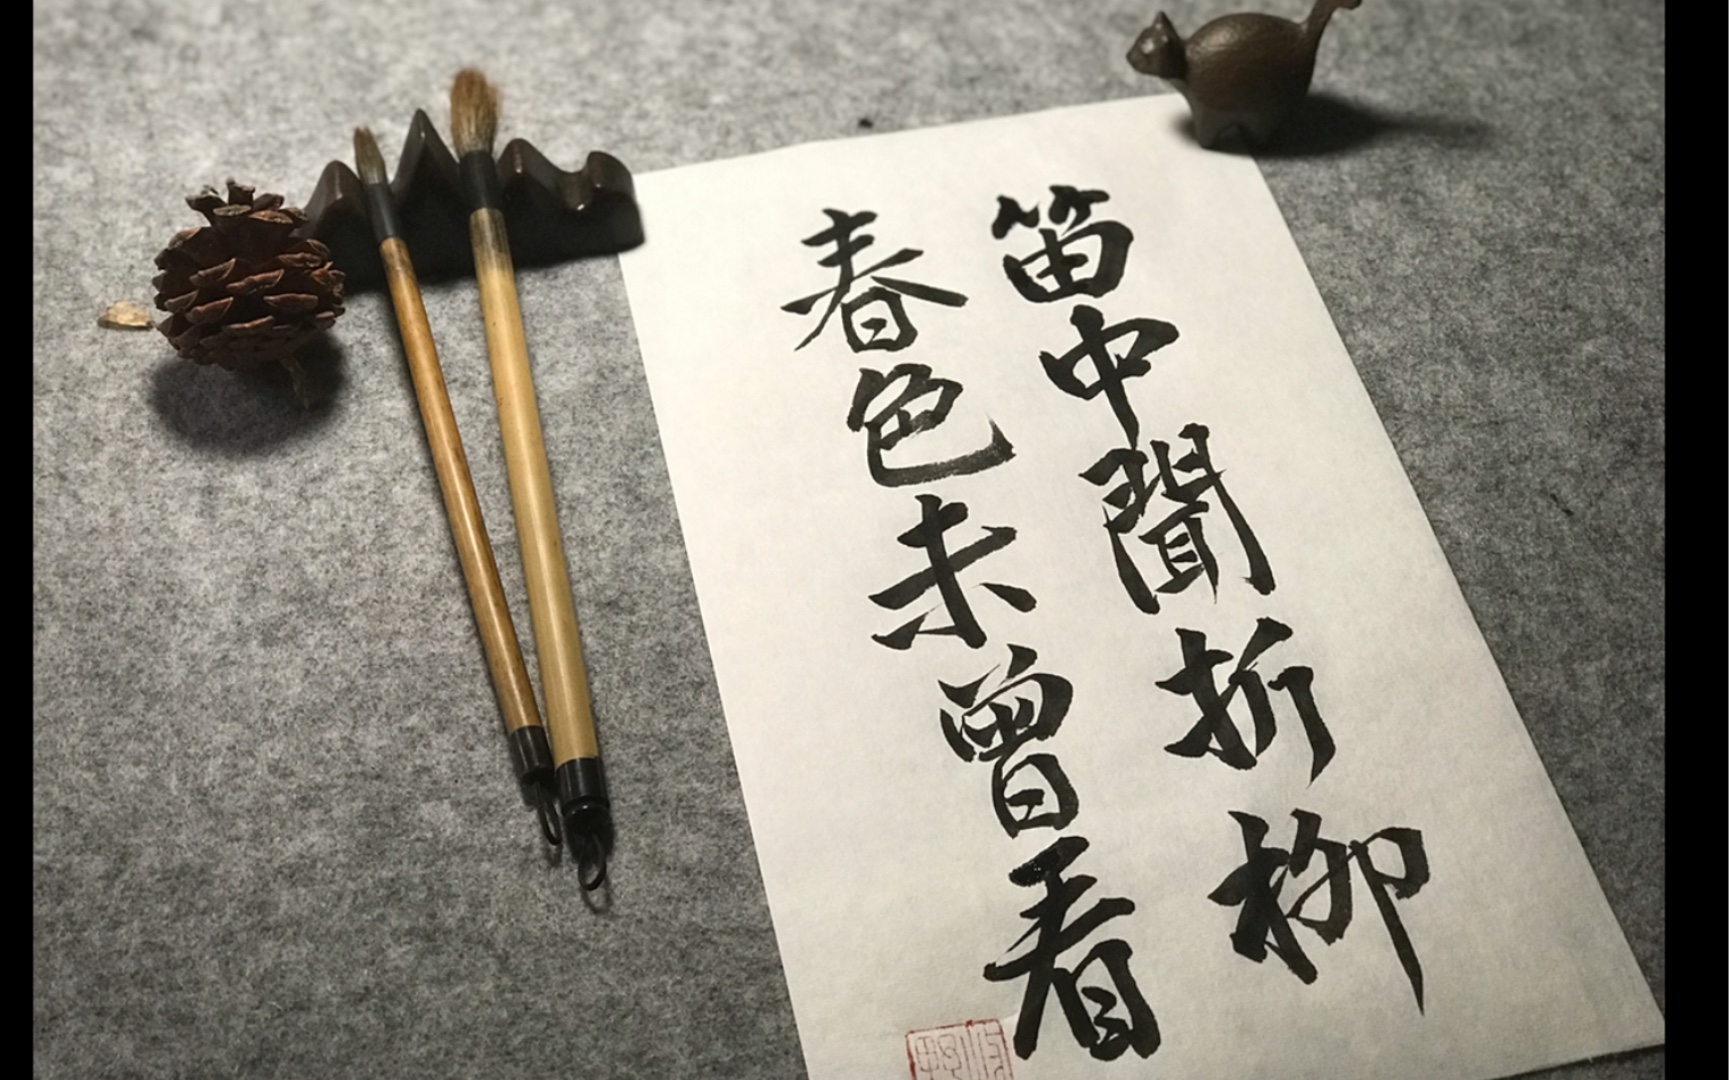 笛中聞折柳
春色未曾看